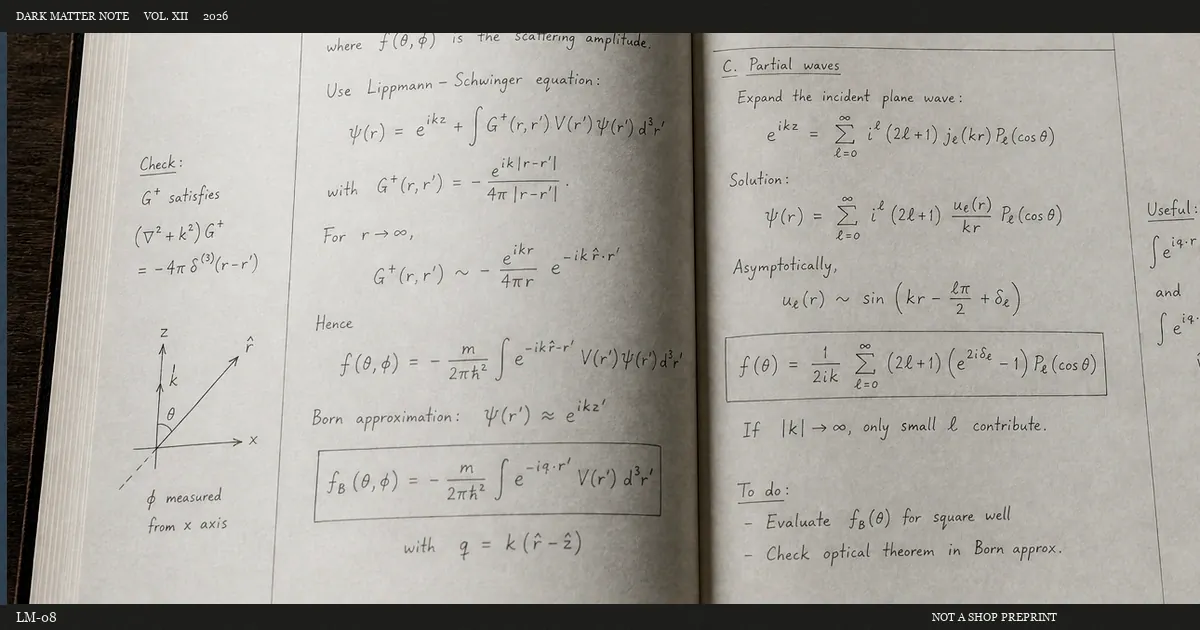 DARK MATTER NOTE VOL. XII 2026
where f(θ,ϕ) is the scattering amplitude.
Use Lippmann – Schwinger equation:
ψ(r) = e^{ikz} + ∫ G⁺(r,r′) V(r′) ψ(r′) d³r′
with G⁺(r,r′) = − e^{ik|r−r′|} / 4π |r−r′| .
For r → ∞,
G⁺(r,r′) ~ − e^{ikr} / 4πr e^{−ik r̂·r′}
Hence
f(θ,ϕ) = − m / 2πℏ² ∫ e^{−ik r̂−r′} V(r′) ψ(r′) d³r′
Born approximation: ψ(r′) ≈ e^{ikz′}
f_B (θ,ϕ) = − m / 2πℏ² ∫ e^{−iq·r′} V(r′) d³r′
with q = k (r̂ − ẑ)
Check:
G⁺ satisfies
(∇² + k²) G⁺
= −4π δ⁽³⁾(r−r′)
z
r̂
k
θ
x
ϕ measured
from x axis
C. Partial waves
Expand the incident plane wave:
e^{ikz} = ∑_{ℓ=0}^{∞} i^ℓ (2ℓ+1) j_ℓ(kr) P_ℓ(cos θ)
Solution:
ψ(r) = ∑_{ℓ=0}^{∞} i^ℓ (2ℓ+1) u_ℓ(r) / kr P_ℓ(cos θ)
Asymptotically,
u_ℓ(r) ~ sin (kr − ℓπ / 2 + δ_ℓ)
f(θ) = 1 / 2ik ∑_{ℓ=0}^{∞} (2ℓ+1) (e^{2iδ_ℓ} − 1) P_ℓ(cos θ)
If |k| → ∞, only small ℓ contribute.
To do:
– Evaluate f_B(θ) for square well
– Check optical theorem in Born approx.
Useful:
∫ e^{iq·r
and
∫ e^{iq·
LM-08 NOT A SHOP PREPRINT